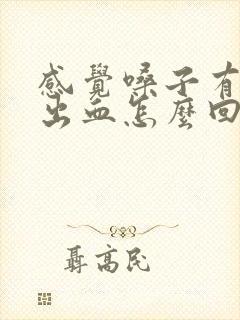 感覺嗓子有
出血怎麼回
聶高民